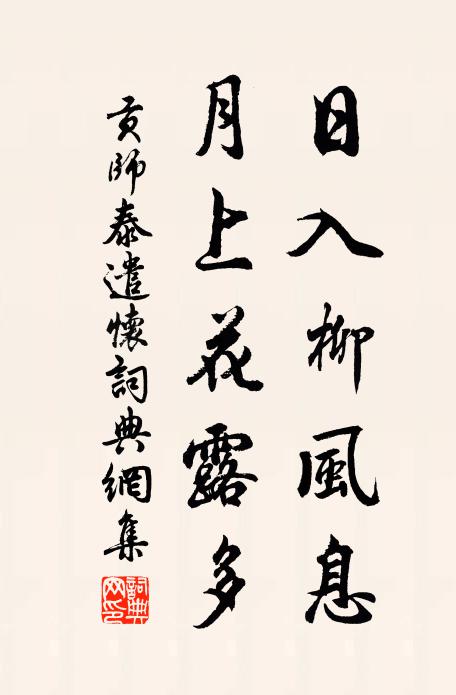 日入柳風息
月上花露多
貢師泰遣懷詞典網集
詞典網印